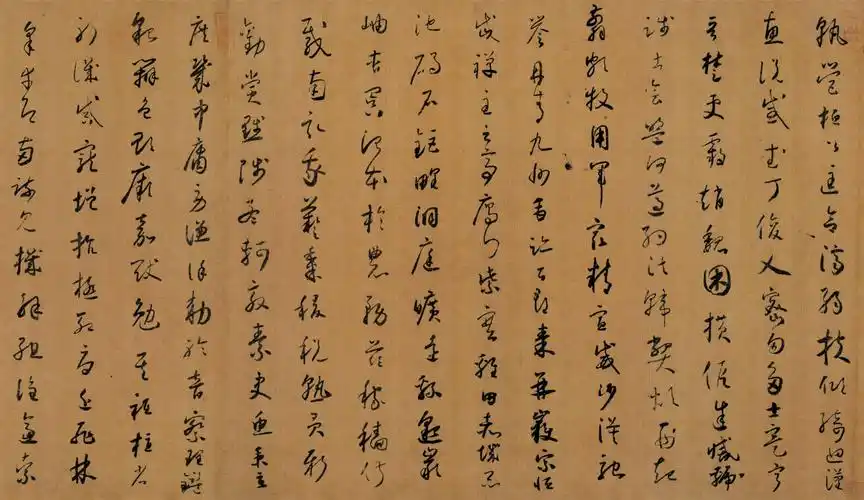 孰營桓公匡合濟弱扶傾綺迴漢
惠說感武丁俊乂密勿多士寔寧
晉楚更霸趙魏困橫假途滅虢
踐土會盟何遵約法韓弊煩刑起
翦頗牧用軍最精宣威沙漠馳
譽丹青九州禹跡百郡秦并嶽宗恒
岱禪主云亭雁門紫塞雞田赤城昆
池碣石鉅野洞庭曠遠緜邈巖
岫杳冥治本於農務茲稼穡俶
載南畝我藝黍稷稅熟貢新
勸賞黜陟孟軻敦素史魚秉直
庶幾中庸勞謙謹勑聆音察理鑑
貌辯色貽厥嘉猷勉其祗植省
躬譏誡寵增抗極殆辱近恥林
皋幸即兩疏見機解組誰逼索